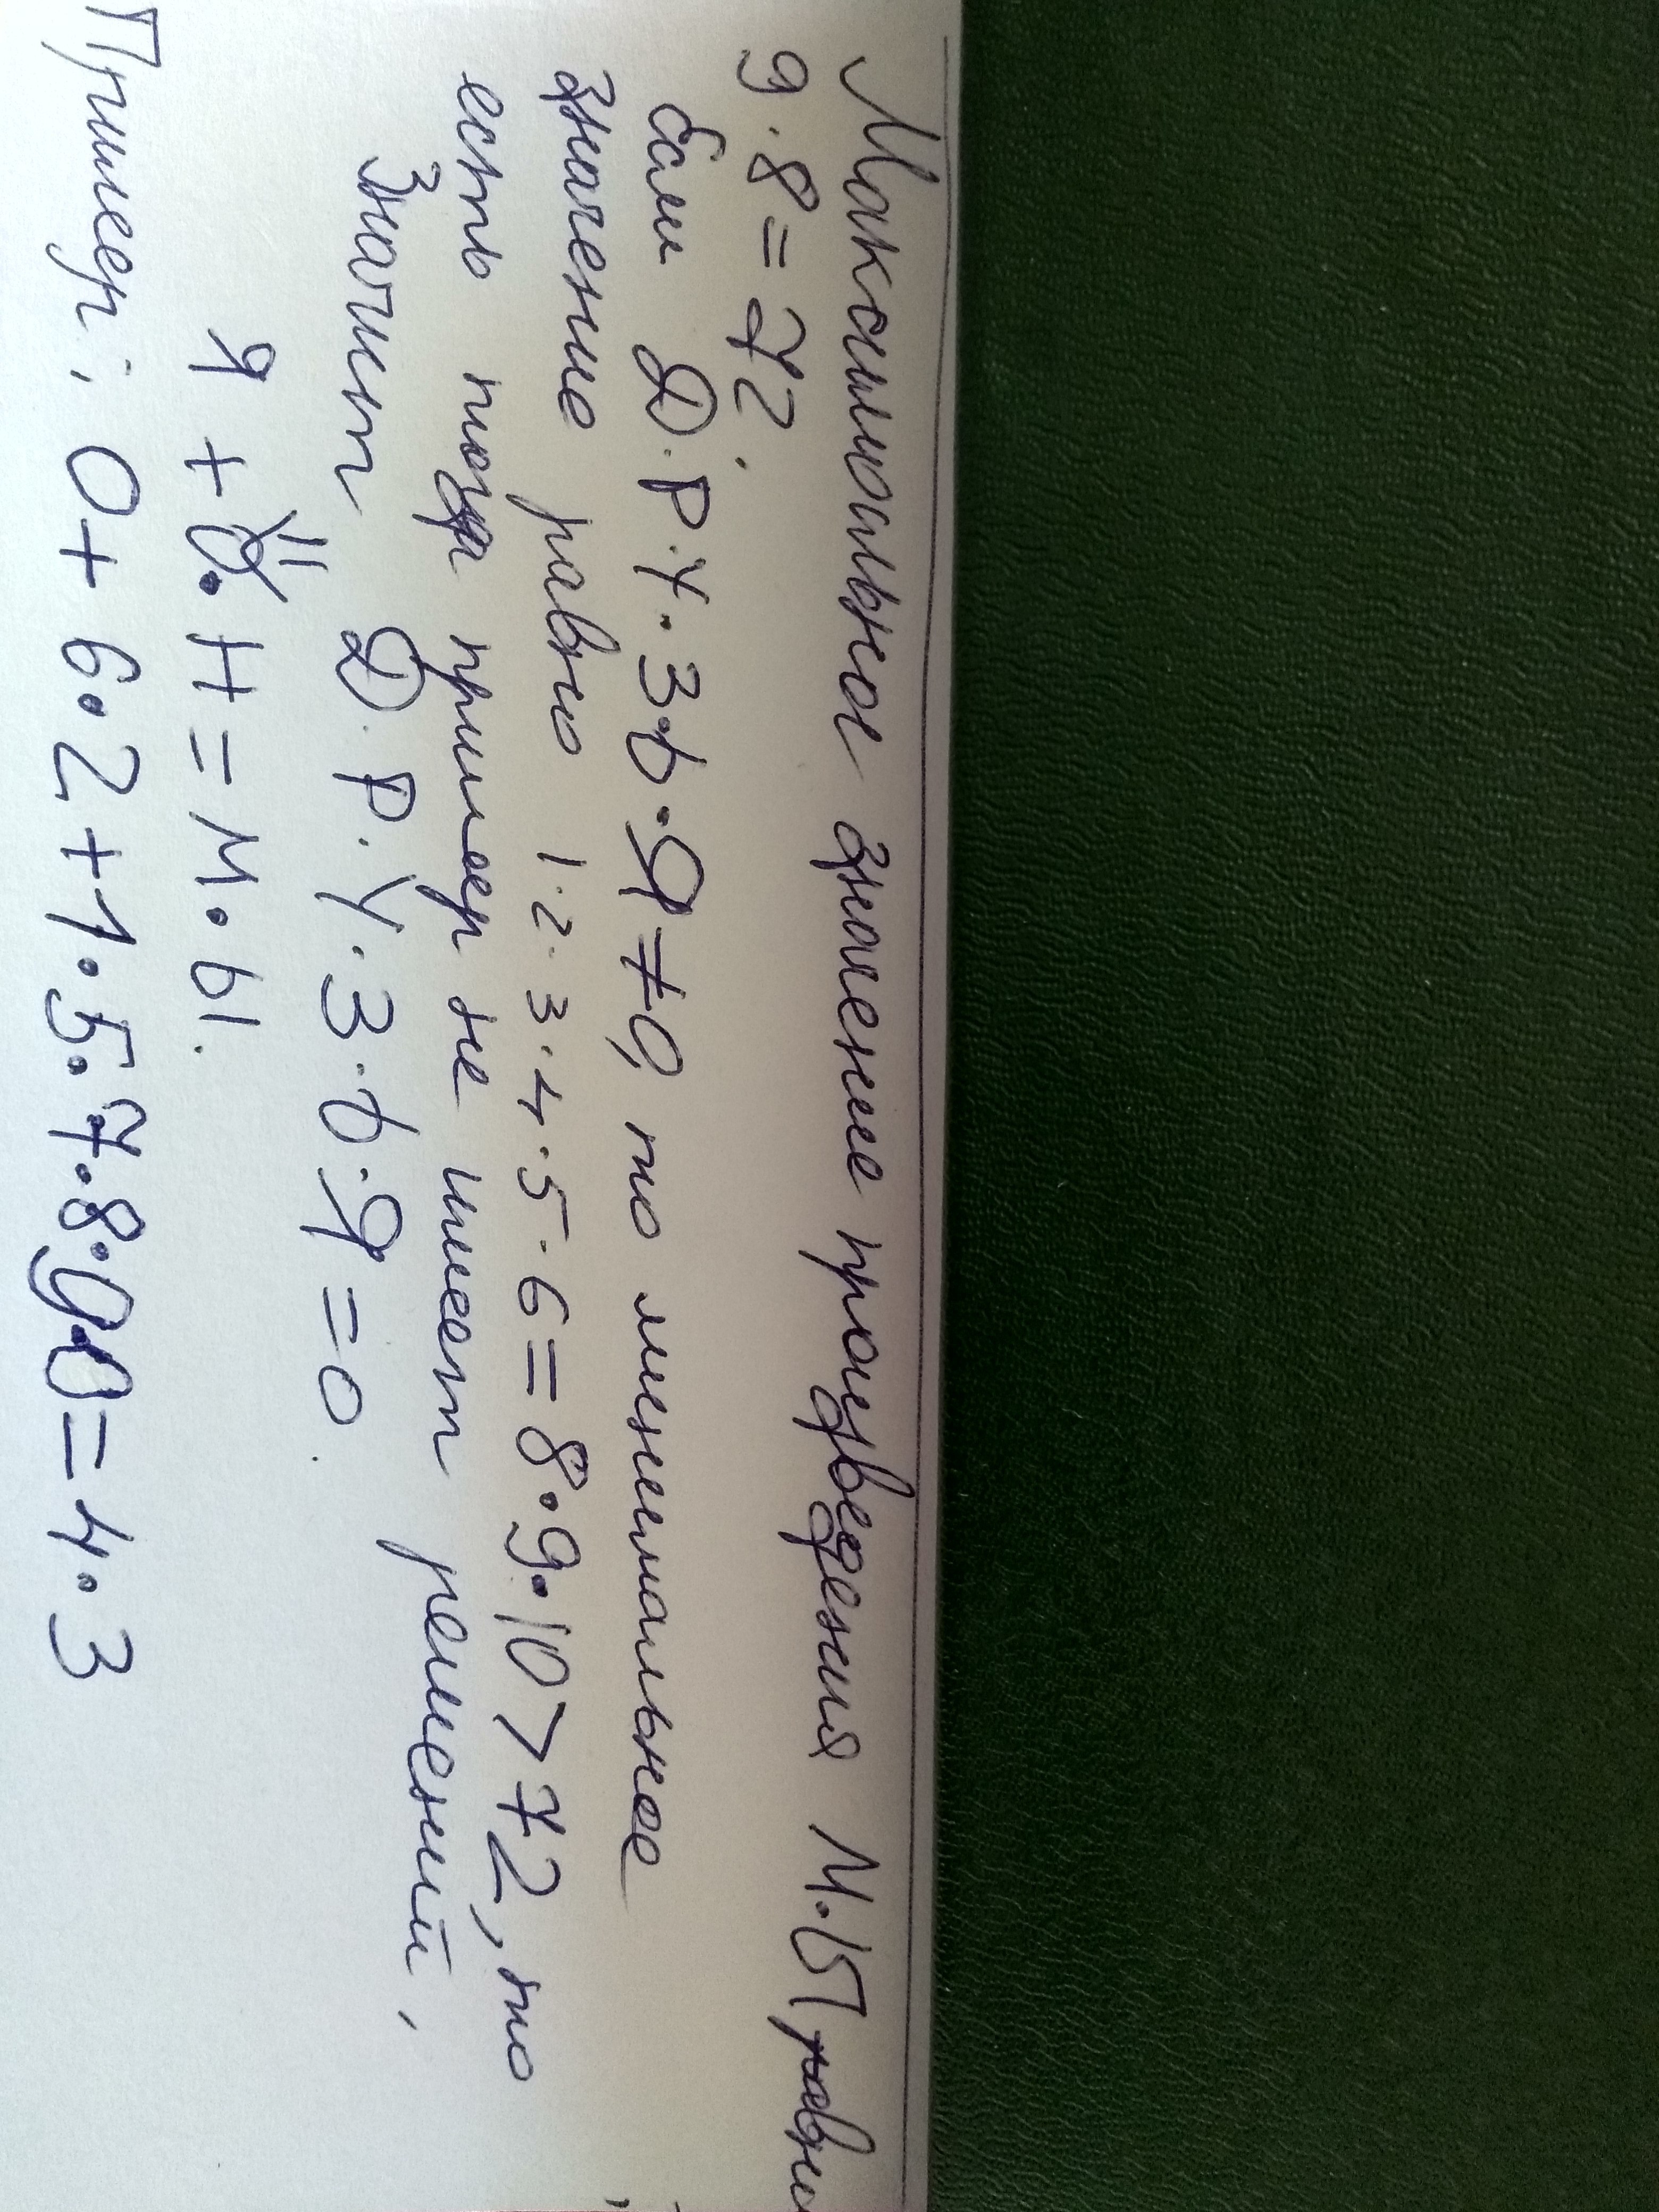 Максимальное значение произведения М·Ы равно
9·8=72.
Если Д·Р·У·З·Ь·Я≠0, то минимальное
значение равно 1·2·3·4·5·6=8·9·10>72, то
есть тогда пример не имеет решений,
Значит Д·Р·У·З·Ь·Я=0.
Я + И·Н=М·Ы.
Пример: 0+6·2+1·5·7·8·9·0=4·3